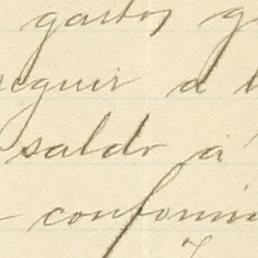 gastos g
eguir a l
saldo á
conformi